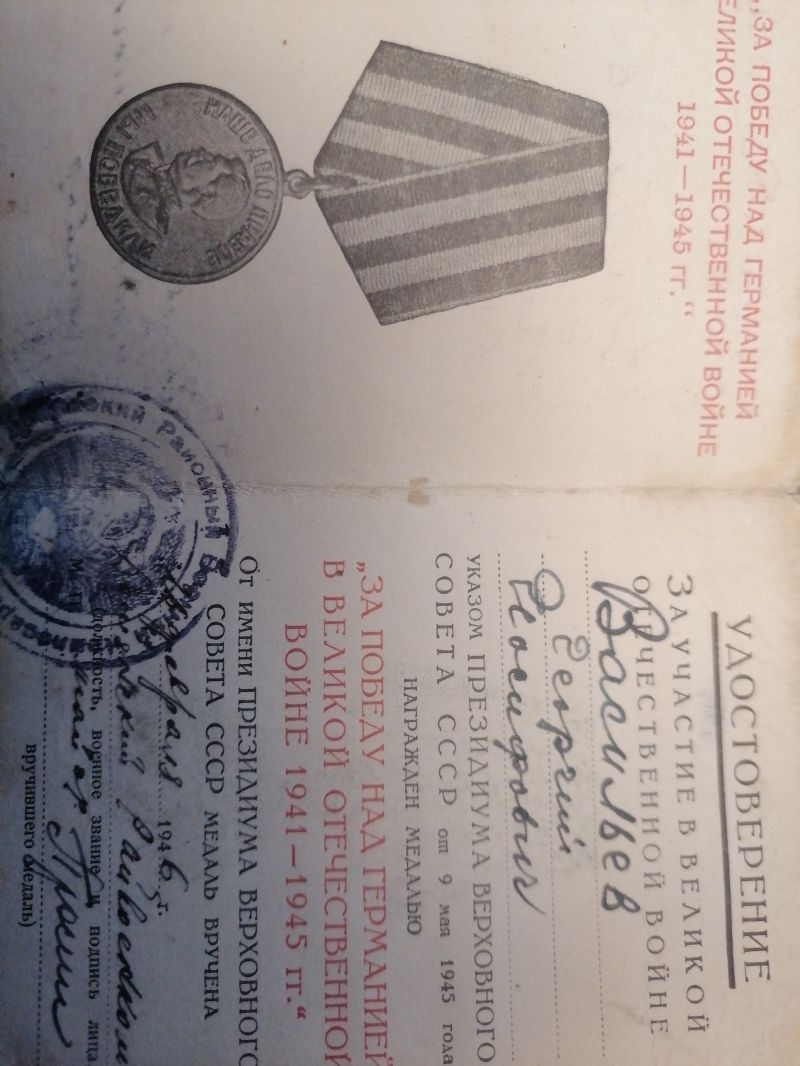 „ЗА ПОБЕДУ НАД ГЕРМАНИЕЙ
ЕЛИКОЙ ОТЕЧЕСТВЕННОЙ ВОЙНЕ
1941—1945 гг.“
НАШЕ ДЕЛО ПРАВОЕ
МЫ ПОБЕДИЛИ
УДОСТОВЕРЕНИЕ
ЗА УЧАСТИЕ В ВЕЛИКОЙ
ОТЕЧЕСТВЕННОЙ ВОЙНЕ
Васильев
Георгий
Иосифович
УКАЗОМ ПРЕЗИДИУМА ВЕРХОВНОГО
СОВЕТА СССР от 9 мая 1945 года
НАГРАЖДЕН МЕДАЛЬЮ
„ЗА ПОБЕДУ НАД ГЕРМАНИЕЙ
В ВЕЛИКОЙ ОТЕЧЕСТВЕННОЙ
ВОЙНЕ 1941—1945 гг.“
От ИМЕНИ ПРЕЗИДИУМА ВЕРХОВНОГО
СОВЕТА СССР МЕДАЛЬ ВРУЧЕНА
февраля 1946 г.
райвоенком
М. П. майор
(должность, военное звание и подпись лица,
вручившего медаль)
Районный